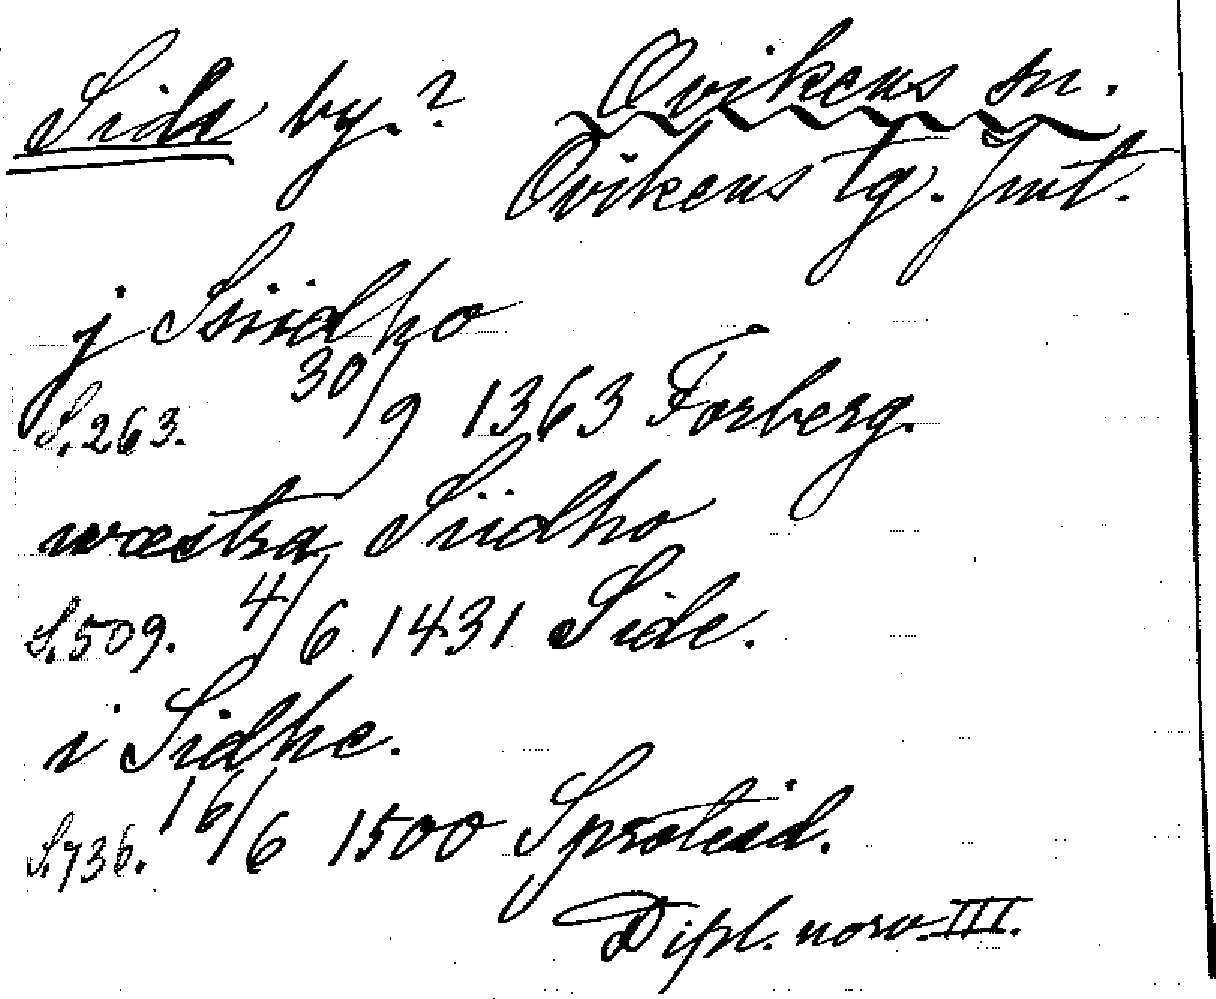 Side by.? Ovikens sn.
Ovikens tg. Jmt.
j Siidho
S. 263. 30/9 1363 Forberg.
wæstra Siidho
S. 509. 4/6 1431 Side.
i Sidhe.
S. 736. 16/6 1500 Sproteid.
Dipl. norv. III.